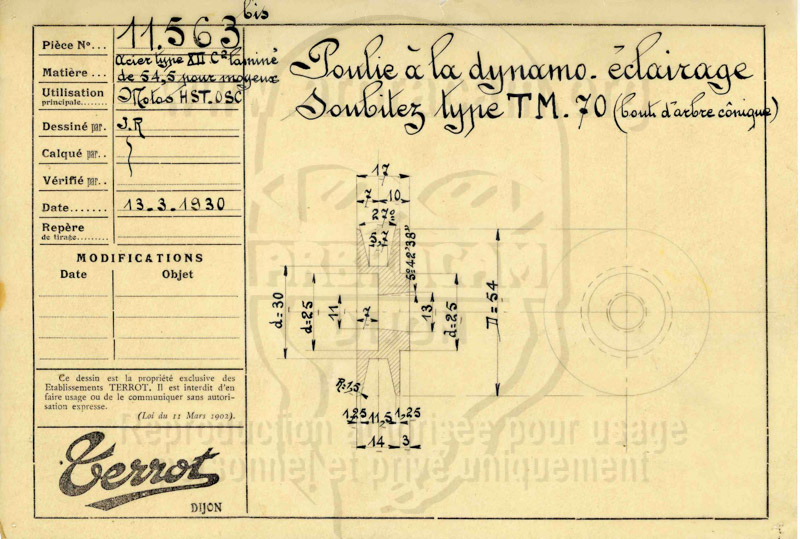 Pièce Nº... 11.563 bis
Matière... Acier type XII C² laminé
de 54,5 pour moyeux
Utilisation
principale........ Motos HST-OSC
Dessiné par. J.R
Calqué par..
Vérifié par..
Date....... 13.3.1930
Repère
de tirage........
MODIFICATIONS
Date Objet
Ce dessin est la propriété exclusive des
Etablissements TERROT. Il est interdit d'en
faire usage ou de le communiquer sans autori-
sation expresse.
(Loi du 11 Mars 1902).
Terrot
DIJON
Poulie à la dynamo-éclairage
Soubitez type TM.70 (bout d'arbre cônique)
17
7 10
27º
5,7
5º42'38"
d=30
d=25
11
2
13
d=25
D=54
R=1,5
1,25 11,5 1,25
14 3
Reproduction autorisée pour usage
personnel et privé uniquement